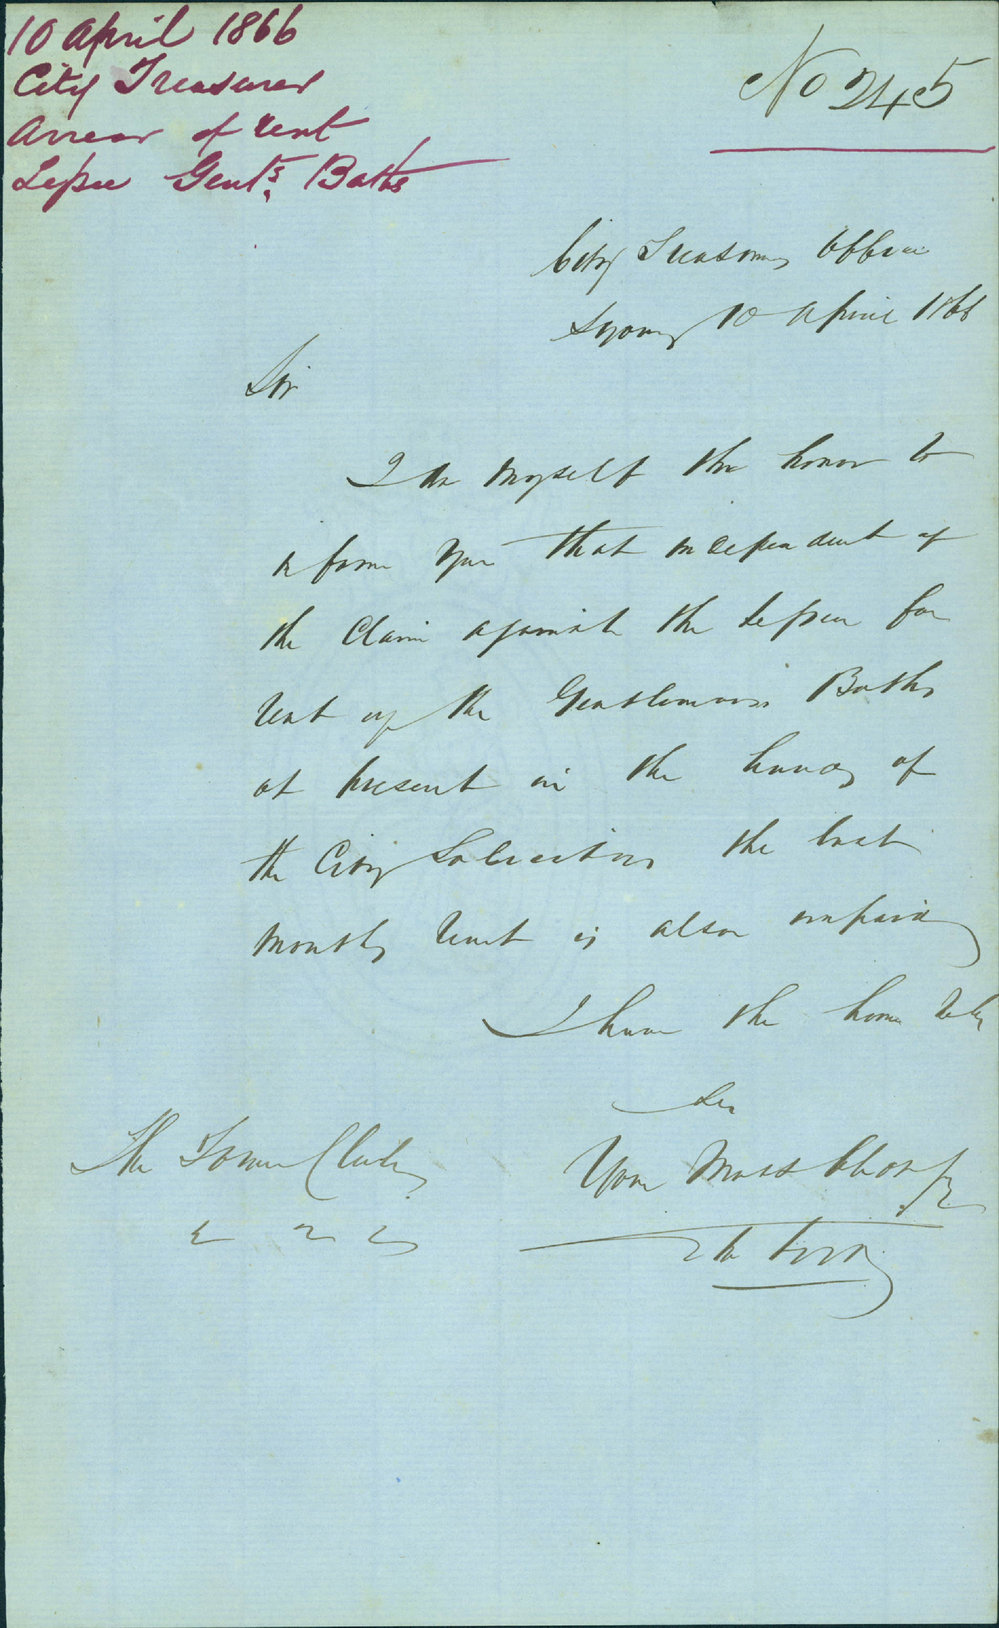 10 April 1866
City Treasurer
Arrear of rent
Lessee Gent's Baths
No 245
City Treasurers Office
Sydney 10 April 1866
Sir
I do myself the honor to
inform you that independent of
the Claim against the Lessee for
rent of the Gentlemens Baths
at present in the hands of
the City Solicitors the last
months rent is also unpaid
I have the honor to be
Sir
Your Most Obdt
The Town Clerk